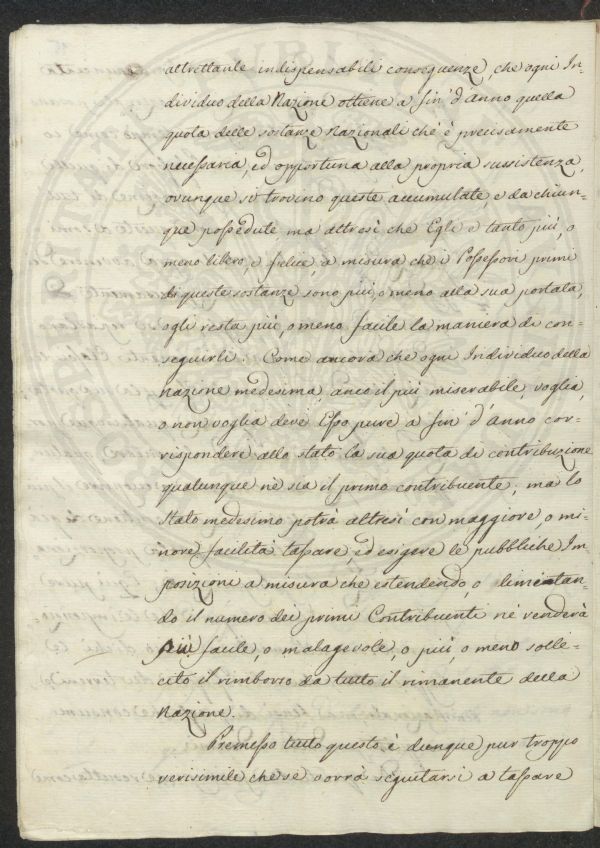 altrettante indispensabili conseguenze, che ogni In-
dividuo della Nazione ottiene a fin' d'anno quella
quota delle sostanze Nazionali ch'è precisamente
necessaria, ed opportuna alla propria sussistenza,
ovunque si trovino queste accumulate, e da chiun-
que possedute ma altresì che Egli è tanto più, o
meno libero, e felice, a misura che i Possessori primi
di queste sostanze sono più, o meno alla sua portata,
ogli resta più, o meno facile la maniera di con-
seguirli. Come ancora che ogni Individuo della
nazione medesima, anco il più miserabile, voglia,
o non voglia deve Esso pure a fin' d'Anno cor-
rispondere allo stato la sua quota di contribuzione
qualunque nè sia il primo contribuente, ma lo
Stato medesimo potrà altresì con maggiore, o mi-
nore facilità tassare, ed esigere le pubbliche Im-
posizioni a misura che estendendo, o limitan-
do il numero dei primi Contribuenti nè renderà
più facile, o malagevole, o più, o meno solle-
cito il rimborso da tutto il rimanente della
Nazione.
Premesso tutto questo è dunque pur troppo
verisimile che se vorrà seguitarsi a tassare